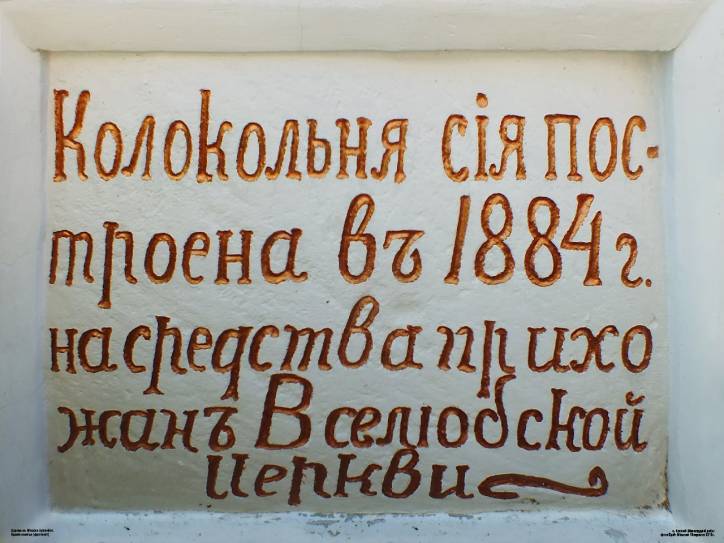 Колокольня сія пос-
троена въ 1884 г.
на средства прихо
жанъ Вселюбской
Церкви